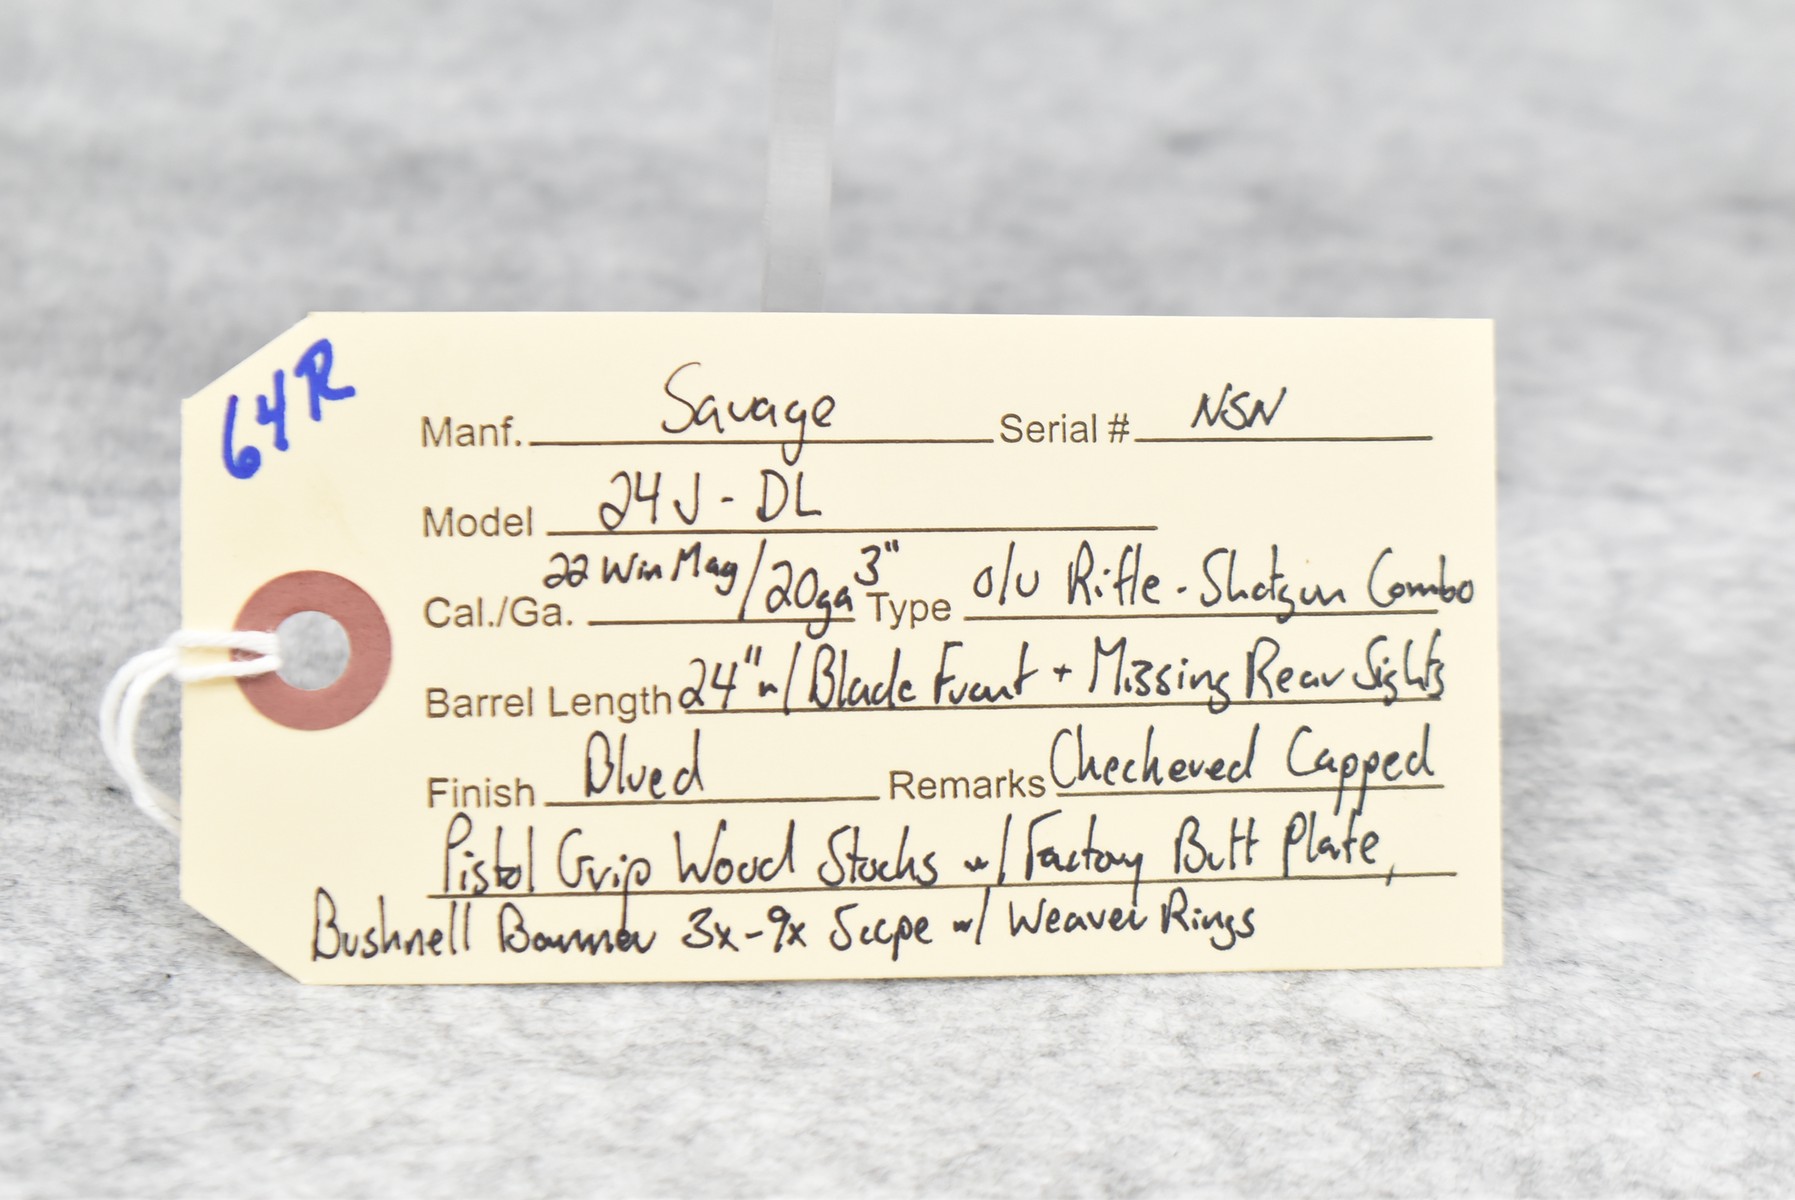 64R
Manf. Savage Serial # NSN
Model 24J-DL
Cal./Ga. 22 Win Mag/20ga 3" Type O/U Rifle-Shotgun Combo
Barrel Length 24" w/ Blade Front + Missing Rear Sights
Finish Blued Remarks Checkered Capped
Pistol Grip Wood Stocks w/ Factory Butt Plate,
Bushnell Banner 3x-9x Scope w/ Weaver Rings